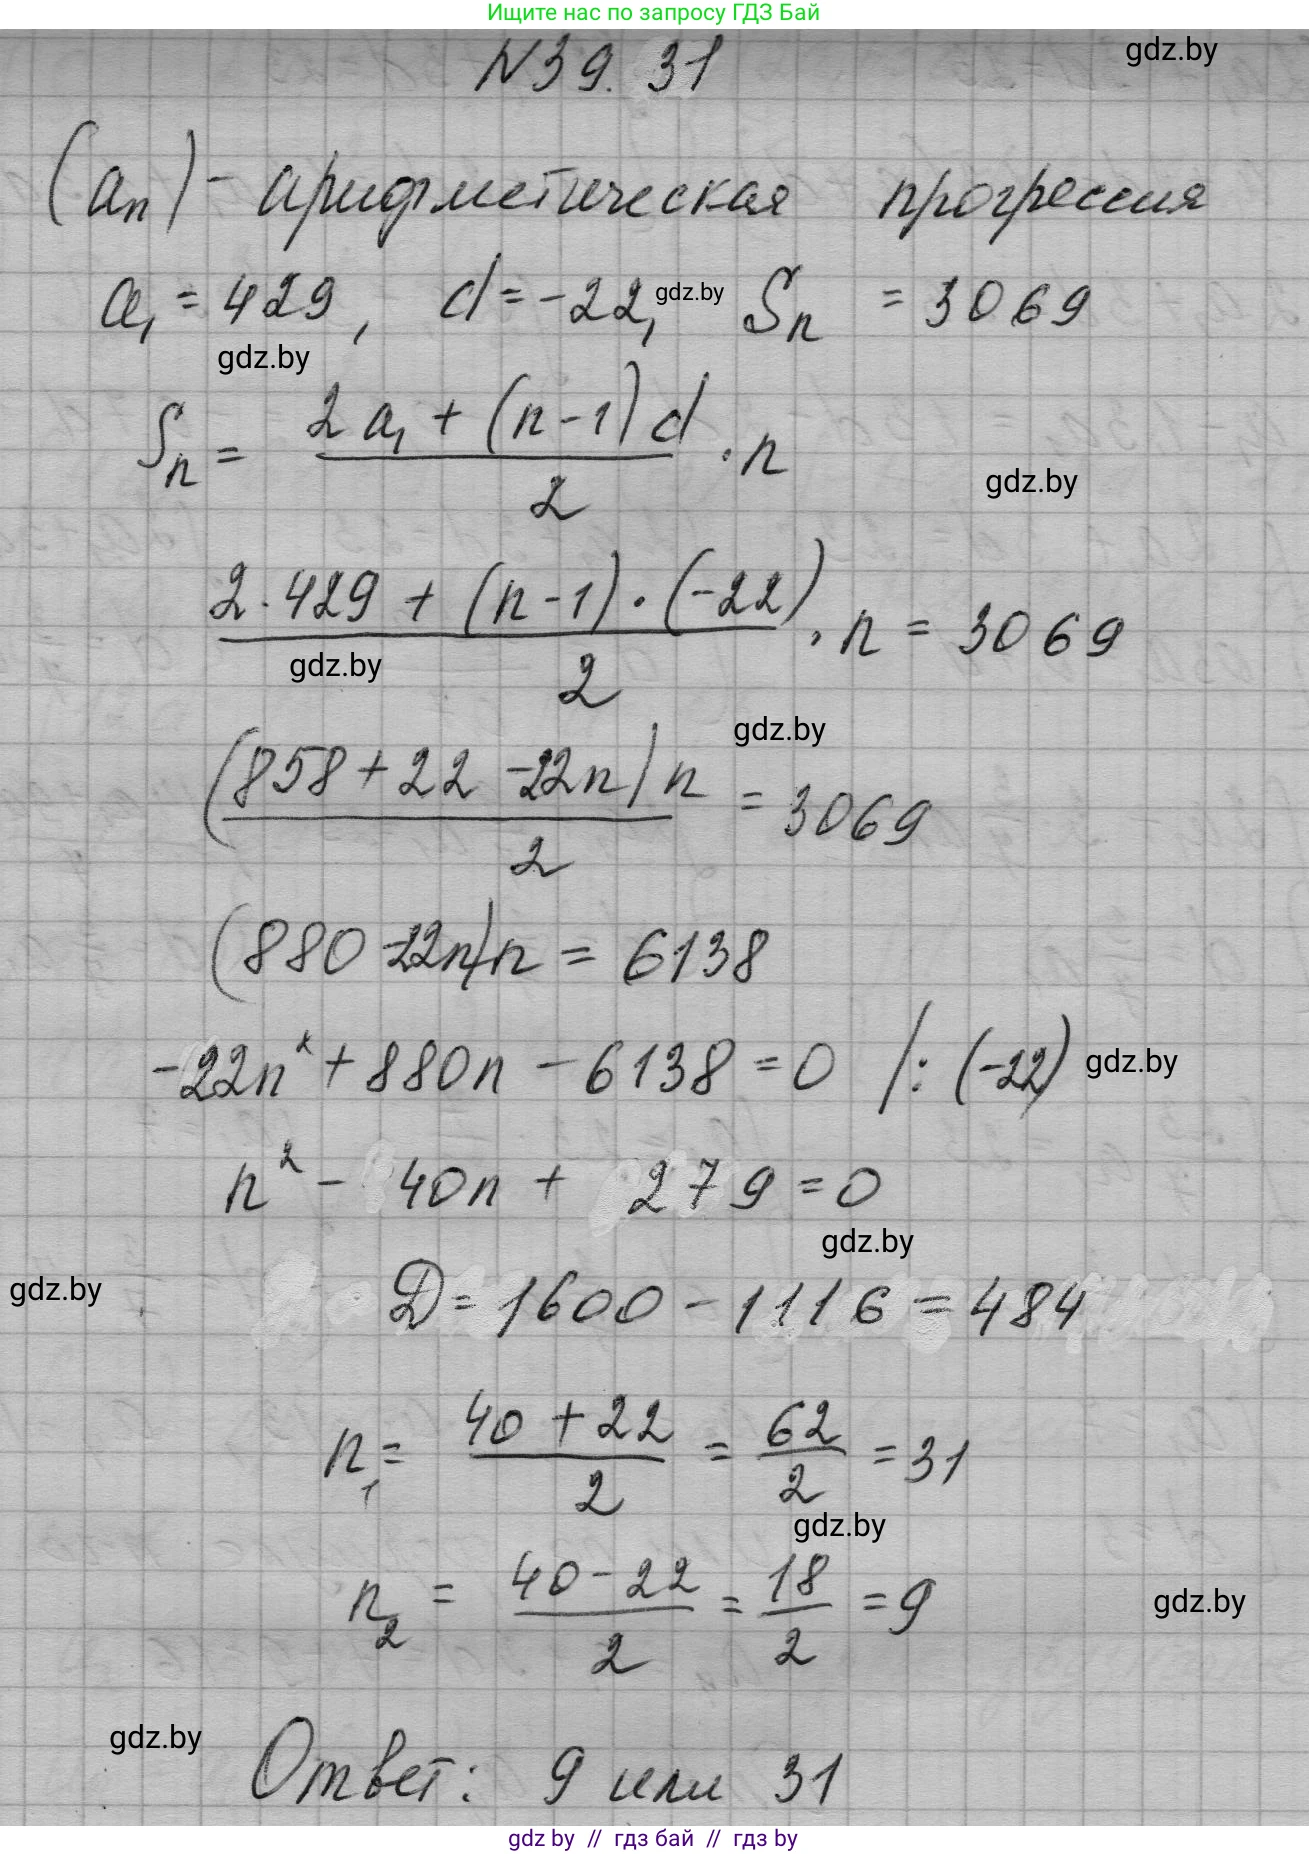 Ищите нас по запросу ГДЗ Бай
gdz.by
N39.31
(aₙ) - арифметическая прогрессия
a₁ = 429, d = -22, Sₙ = 3069
gdz.by
gdz.by
Sₙ = (2a₁ + (n-1)d)/2 · n
gdz.by
(2·429 + (n-1)·(-22))/2 · n = 3069
gdz.by
gdz.by
((858 + 22 - 22n)n)/2 = 3069
(880 - 22n)n = 6138
-22n² + 880n - 6138 = 0 /: (-22)
gdz.by
n² - 40n + 279 = 0
gdz.by
gdz.by
D = 1600 - 1116 = 484
n₁ = (40 + 22)/2 = 62/2 = 31
gdz.by
n₂ = (40 - 22)/2 = 18/2 = 9
gdz.by
gdz.by
Ответ: 9 или 31
gdz by // гдз бай // гдз by